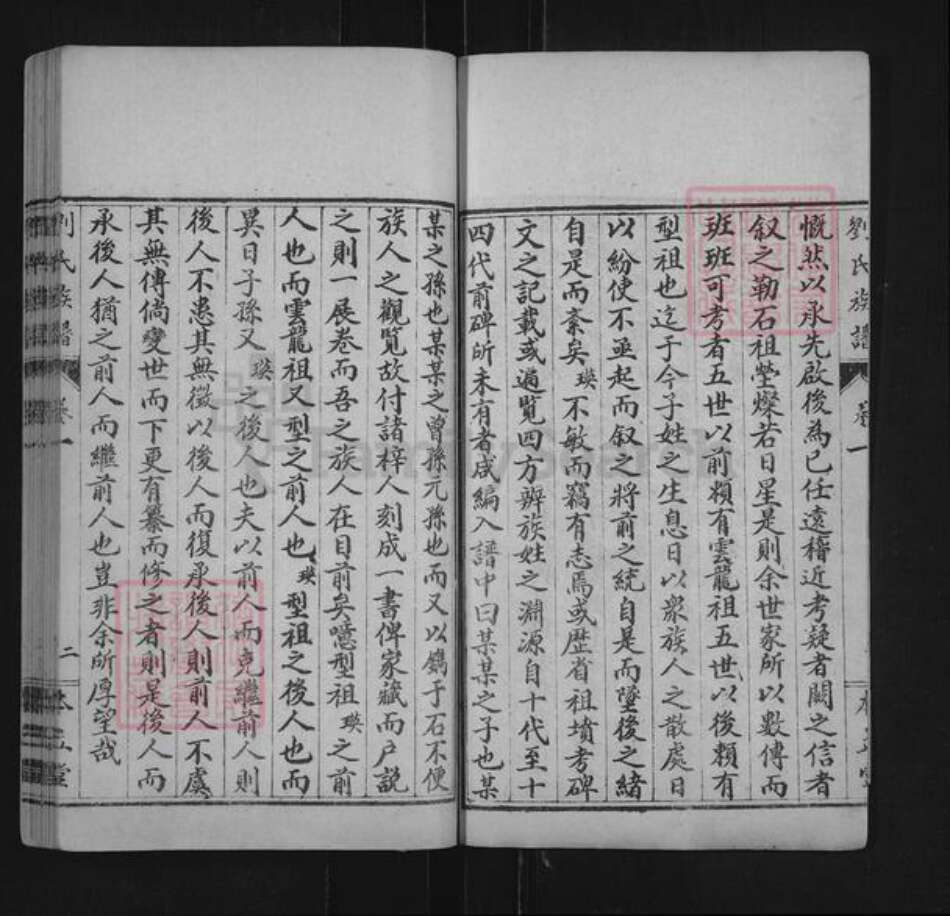 劉氏族譜 卷一
慨然以承先啟後為己任遠稽近考疑者闕之信者
叙之勒石祖塋燦若日星是則余世家所以數傳而
班班可考者五世以前賴有雲龍祖五世以後賴有
型祖也迄于今子姓之生息日以衆族人之散處日
以紛使不亟起而叙之將前之統自是而墜後之緒
自是而紊矣瑛不敏而竊有志焉或歷省祖墳考碑
文之記載或遍覽四方辨族姓之淵源自十代至十
四代前碑所未有者咸編入譜中曰某某之子也某
某之孫也某某之曾孫元孫也而又以鐫于石不便
族人之觀覽故付諸梓人刻成一書俾家藏而戶說
之則一展卷而吾之族人在目前矣噫型祖瑛之前
人也而雲龍祖又型之前人也瑛型祖之後人也而
異日子孫又瑛之後人也夫以前人而克繼前人則
後人不患其無徵以後人而復承後人則前人不虞
其無傳倘變世而下更有纂而修之者則是後人而
承後人猶之前人而繼前人也豈非余所厚望哉
劉氏族譜 卷一 二 堂